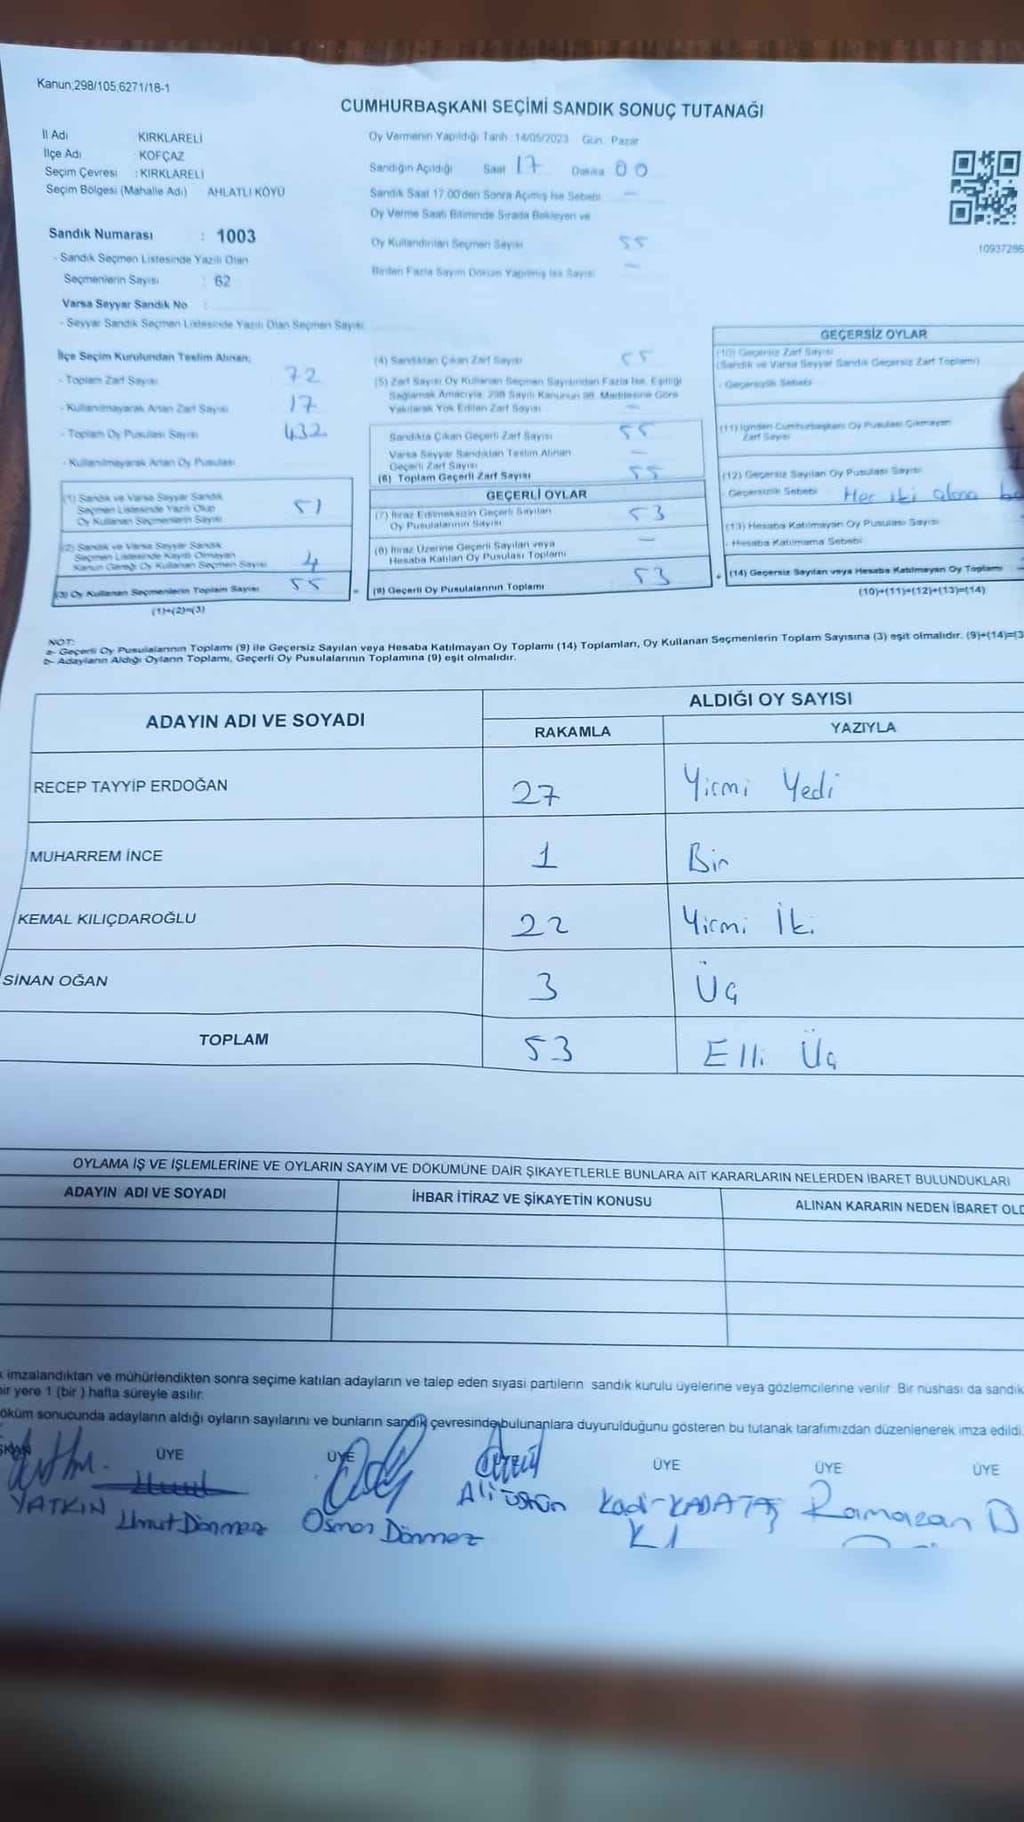 Kanun;298/105,6271/18-1
CUMHURBAŞKANI SEÇİMİ SANDIK SONUÇ TUTANAĞI
İl Adı KIRKLARELİ
İlçe Adı KOFÇAZ
Seçim Çevresi : KIRKLARELİ
Seçim Bölgesi (Mahalle Adı) AHLATLI KÖYÜ
Sandık Numarası : 1003
- Sandık Seçmen Listesinde Yazılı Olan
Seçmenlerin Sayısı : 62
Varsa Seyyar Sandık No :
- Seyyar Sandık Seçmen Listesinde Yazılı Olan Seçmen Sayısı
Oy Vermenin Yapıldığı Tarih :14/05/2023 Gün: Pazar
Sandığın Açıldığı Saat 17 Dakika 00
Sandık Saat 17.00'den Sonra Açılmış İse Sebebi —
Oy Verme Saati Bitiminde Sırada Bekleyen ve
Oy Kullandırılan Seçmen Sayısı 55
Birden Fazla Sayım Döküm Yapılmış İse Sayısı —
10937286
İlçe Seçim Kurulundan Teslim Alınan;
- Toplam Zarf Sayısı 72
- Kullanılmayarak Artan Zarf Sayısı 17
- Toplam Oy Pusulası Sayısı 432
- Kullanılmayarak Artan Oy Pusulası
(1) Sandık ve Varsa Seyyar Sandık
Seçmen Listesinde Yazılı Olup
Oy Kullanan Seçmenlerin Sayısı 51
(2) Sandık ve Varsa Seyyar Sandık
Seçmen Listesinde Kayıtlı Olmayan
Kanun Gereği Oy Kullanan Seçmen Sayısı 4
(3) Oy Kullanan Seçmenlerin Toplam Sayısı 55
(1)+(2)=(3)
(4) Sandıktan Çıkan Zarf Sayısı 55
(5) Zarf Sayısı Oy Kullanan Seçmen Sayısından Fazla İse, Eşitliği
Sağlamak Amacıyla, 298 Sayılı Kanunun 98. Maddesine Göre
Yakılarak Yok Edilen Zarf Sayısı —
Sandıkta Çıkan Geçerli Zarf Sayısı 55
Varsa Seyyar Sandıktan Teslim Alınan
Geçerli Zarf Sayısı —
(6) Toplam Geçerli Zarf Sayısı 55
GEÇERLİ OYLAR
(7) İtiraz Edilmeksizin Geçerli Sayılan
Oy Pusulalarının Sayısı 53
(8) İtiraz Üzerine Geçerli Sayılan veya
Hesaba Katılan Oy Pusulası Toplamı —
(9) Geçerli Oy Pusulalarının Toplamı 53
GEÇERSİZ OYLAR
(10) Geçersiz Zarf Sayısı
(Sandık ve Varsa Seyyar Sandık Geçersiz Zarf Toplamı)
- Geçersizlik Sebebi
(11) İçinden Cumhurbaşkanı Oy Pusulası Çıkmayan
Zarf Sayısı
(12) Geçersiz Sayılan Oy Pusulası Sayısı
- Geçersizlik Sebebi Her iki alana
(13) Hesaba Katılmayan Oy Pusulası Sayısı
- Hesaba Katılmama Sebebi
(14) Geçersiz Sayılan veya Hesaba Katılmayan Oy Toplamı
(10)+(11)+(12)+(13)=(14)
NOT:
a- Geçerli Oy Pusulalarının Toplamı (9) ile Geçersiz Sayılan veya Hesaba Katılmayan Oy Toplamı (14) Toplamları, Oy Kullanan Seçmenlerin Toplam Sayısına (3) eşit olmalıdır. (9)+(14)=(3
b- Adayların Aldığı Oyların Toplamı, Geçerli Oy Pusulalarının Toplamına (9) eşit olmalıdır.
ADAYIN ADI VE SOYADI
ALDIĞI OY SAYISI
RAKAMLA YAZIYLA
RECEP TAYYİP ERDOĞAN 27 Yirmi Yedi
MUHARREM İNCE 1 Bir
KEMAL KILIÇDAROĞLU 22 Yirmi İki
SİNAN OĞAN 3 Üç
TOPLAM 53 Elli Üç
OYLAMA İŞ VE İŞLEMLERİNE VE OYLARIN SAYIM VE DÖKÜMÜNE DAİR ŞİKAYETLERLE BUNLARA AİT KARARLARIN NELERDEN İBARET BULUNDUKLARI
ADAYIN ADI VE SOYADI İHBAR İTİRAZ VE ŞİKAYETİN KONUSU ALINAN KARARIN NEDEN İBARET OLD
imzalandıktan ve mühürlendikten sonra seçime katılan adayların ve talep eden siyasi partilerin sandık kurulu üyelerine veya gözlemcilerine verilir. Bir nüshası da sandık
bir yere 1 (bir ) hafta süreyle asılır.
döküm sonucunda adayların aldığı oyların sayılarını ve bunların sandık çevresinde bulunanlara duyurulduğunu gösteren bu tutanak tarafımızdan düzenlenerek imza edildi.
ÜYE ÜYE ÜYE ÜYE ÜYE
YATKIN Umut Dönmez Osman Dönmez Ali Üstün Kadir KARATAŞ Ramazan